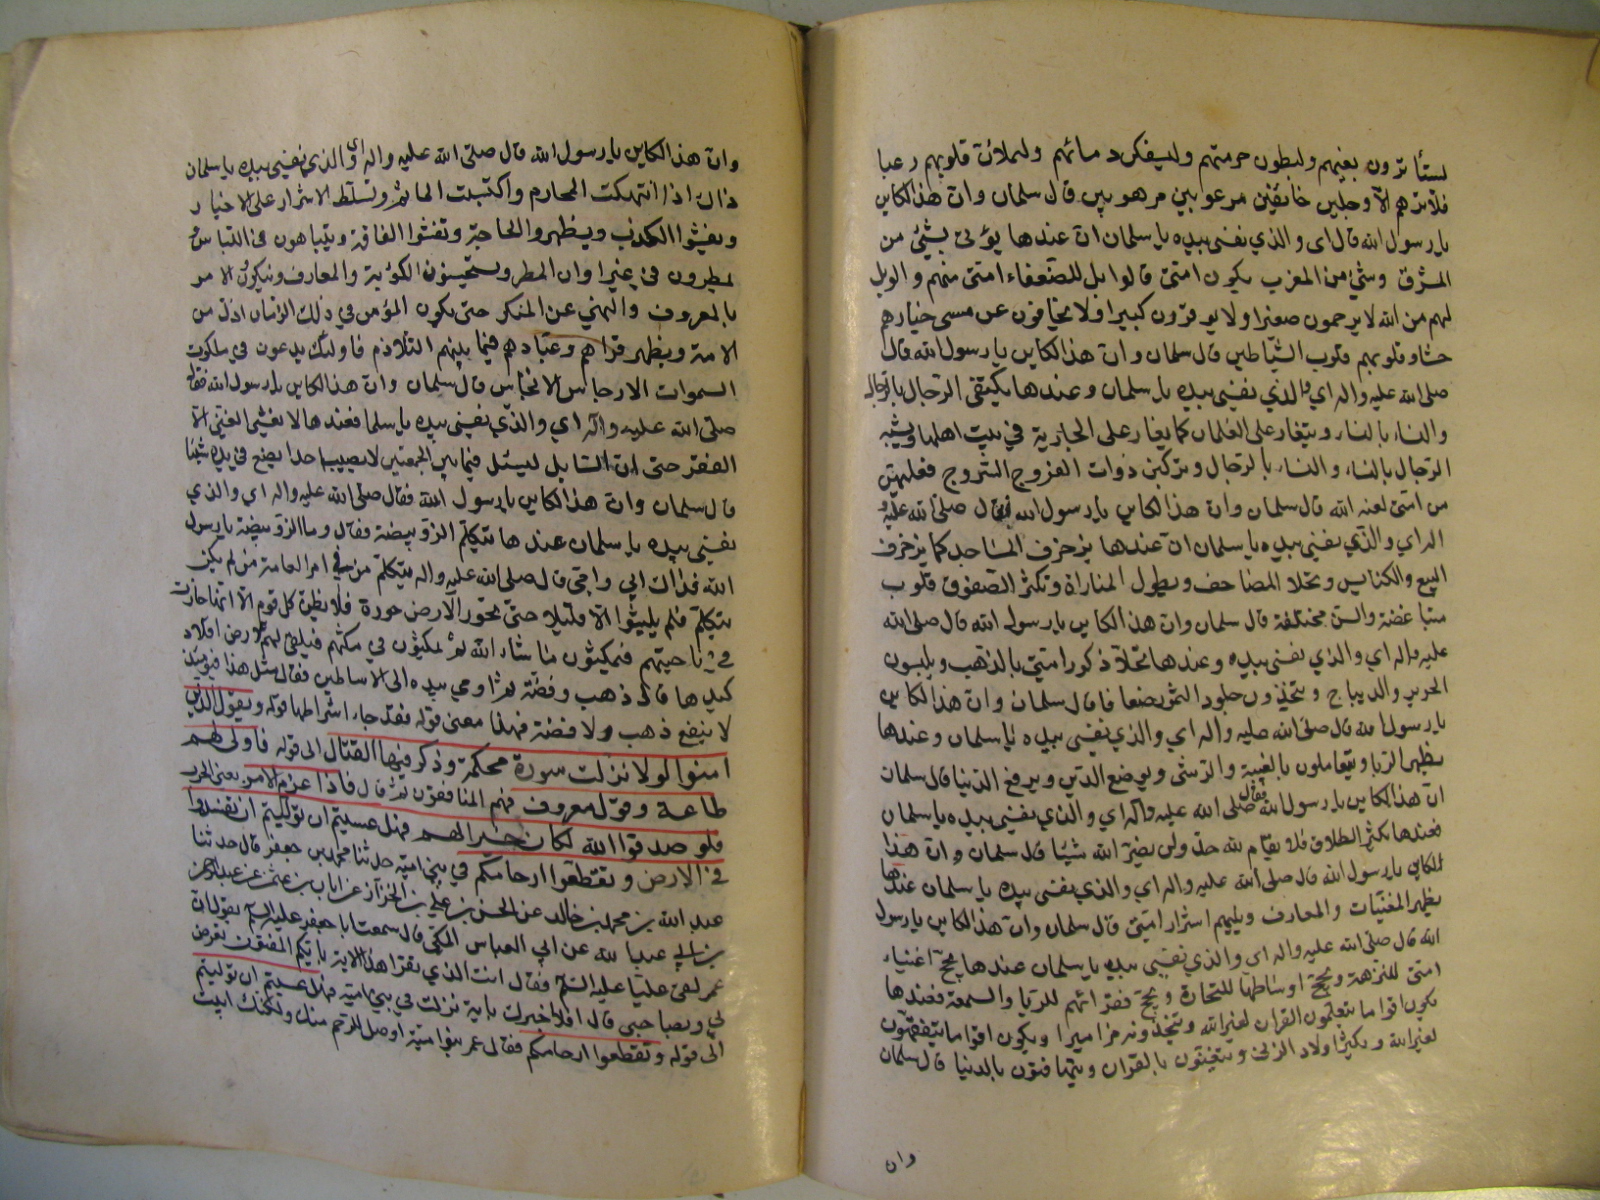 ليستأثرون بفيئهم وليطون حرمتهم وليسفكن دمائهم وليملان قلوبهم رعبا
فلا تريهم الا وجلين خائفين مرعوبين مرهوبين قال سلمان وان هذا لكاين
يا رسول الله قال اى والذي نفسي بيده يا سلمان ان عندها يؤتى بشئ من
المشرق وشئ من المغرب يكون امتى قالوا بل للضعفاء امتى منهم والويل
لهم من الله لا يرحمون صغيرا ولا يوقرون كبيرا ولا يخافون عن مسى خيارهم
قلوبهم قلوب الشياطين قال سلمان وان هذا لكاين يا رسول الله قال
صلى الله عليه واله اي والذي نفسي بيده يا سلمان وعندها يكتفى الرجال بالرجال
والنساء بالنساء ويتغار على الغلمان كما يغار على الجارية في بيت اهلها ويشبه
الرجال بالنساء والنساء بالرجال ويركبن ذوات الفروج السروج فعليهن
من امتى لعنة الله قال سلمان وان هذا لكاين يا رسول الله فقال صلى الله عليه و
اله اي والذي نفسي بيده يا سلمان ان عندها يزخرف المساجد كما يزخرف
البيع والكنايس ويحلا المصاحف ويطول المناراة وتكثر الصفوف قلوب
متباغضة والسن مختلفة قال سلمان وان هذا لكاين يا رسول الله قال صلى الله
عليه واله اي والذي نفسي بيده وعندها تحلا ذكور امتى بالذهب ويلبسون
الحرير والديباج ويتخذون جلود النمور صفافا قال سلمان وان هذا لكاين
يا رسول الله قال صلى الله عليه واله اي والذي نفسي بيده يا سلمان وعندها
يظهر الربا ويتعاملون بالغيبة والرشى ويوضع الدين ويرفع الدنيا قال سلمان
ان هذا لكاين يا رسول الله فقال صلى الله عليه واله اي والذي نفسي بيده يا سلمان
فعندها يكثر الطلاق فلا يقام لله حد ولن يضر الله شيئا قال سلمان وان هذا
لكاين يا رسول الله قال صلى الله عليه واله اي والذي نفسي بيده يا سلمان عندها
يظهر المغنيات والمعازف ويليهم اشرار امتى قال سلمان وان هذا لكاين يا رسول
الله قال صلى الله عليه واله اى والذي نفسي بيده يا سلمان عندها يحج اغنياء
امتى للنزهة ويحج اوساطها للتجارة ويحج فقرائهم للريا والسمعة فعندها
يكون اقواما يتعلمون القران لغير الله ويتخذونه مزاميرا ويكون اقواما يتفقهون
لغير الله ويكثر اولاد الزنى ويتغنون بالقران ويتهافتون بالدنيا قال سلمان
وان
وان هذا لكاين يا رسول الله قال صلى الله عليه واله اي والذي نفسي بيده يا سلمان
ذاك اذا انتهكت المحارم واكتسبت الماثم وتسلط الاشرار على الاخيار
ويفشوا الكذب ويظهر والحاجة وتفشوا الفاقة ويتباهون في اللباس
يمطرون في غير اوان المطر ويستحسنون الكوبة والمعازف وينكرون الامر
بالمعروف والنهي عن المنكر حتى يكون المؤمن في ذلك الزمان اذل من
الامة ويظهر قراهم وعبادهم فيما بينهم التلاوم فاولئك يدعون في ملكوت
السموات الارجاس الانجاس قال سلمان وان هذا لكاين يا رسول الله فقال
صلى الله عليه وآله اي والذي نفسي بيده يا سلمان فعندها لا يخشى الغنى الا
الفقر حتى ان السايل ليسئل فيما بين الجمعتين لا يصيب احدا يضع في يده شيئا
قال سلمان وان هذا لكاين يا رسول الله فقال صلى الله عليه واله اي والذي
نفسي بيده يا سلمان عندها يتكلم الرويبضة فقال وما الرويبضة يا رسول
الله فداك ابي وامي قال صلى الله عليه واله يتكلم من في امر العامة من لم يكن
يتكلم فلم يلبثوا الا قليلا حتى تخور الارض خورة فلا يظن كل قوم الا انها خارت
في ناحيتهم فيمكثون ما شاء الله ثم يمكثون في مكثهم فيلقى لهم الارض افلاذ
كبدها قال ذهب وفضة ثم اومى بيده الى الاساطين فقال مثل هذا فيومئذ
لا ينفع ذهب ولا فضة فهذا معنى قوله فقد جاء اشراطها قوله ويقول الذين
امنوا لولا نزلت سورة محكمة وذكر فيها القتال الى قوله فاولى لهم
طاعة وقول معروف فهم المنافقون ثم قال فاذا عزم الامر يعنى الحرب
فلو صدقوا الله لكان خيرا لهم فهل عسيتم ان توليتم ان تفسدوا
في الارض وتقطعوا ارحامكم في بنى امية حدثنا محمد بن جعفر قال حدثنا
عبد الله بن محمد بن خالد عن الحسن بن علي بن الخزاز عن ابان بن عثمن عن عبد الرحمن
بن ابي عبد الله عن ابي العباس المكى قال سمعت ابا جعفر عليه السلم يقول ان
عمر لقى عليا عليه السلم فقال انت الذي تقرا هذا الاية بايكم المفتون تعرض
لي وبصاحبي قال افلا اخبرك باية نزلت في بني امية فهل عسيتم ان توليتم
الى قوله وتقطعوا ارحامكم فقال عمر بنوا امية اوصل للرحم منك ولكنك ابيت